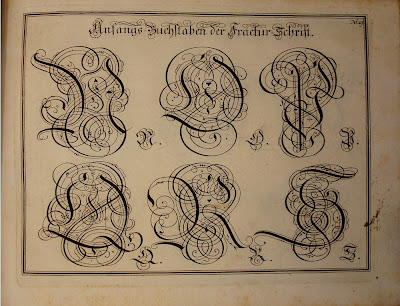 Anfangs Buchstaben der Fractur Schrifft.
N. O. P.
Q. R. S.